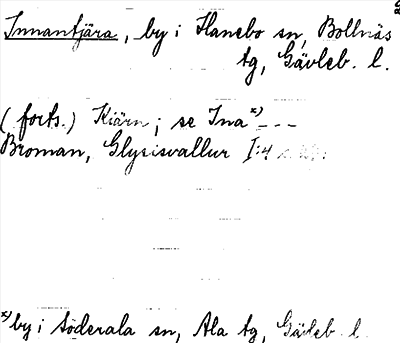 Innantjära, by i Hanebo sn, Bollnäs
tg, Gävleb. l.
(forts.) Kiärn; se Ina x) - - -
Broman, Glysisvallur I:4
x) by i Söderala sn, Ala tg, Gävleb. l.